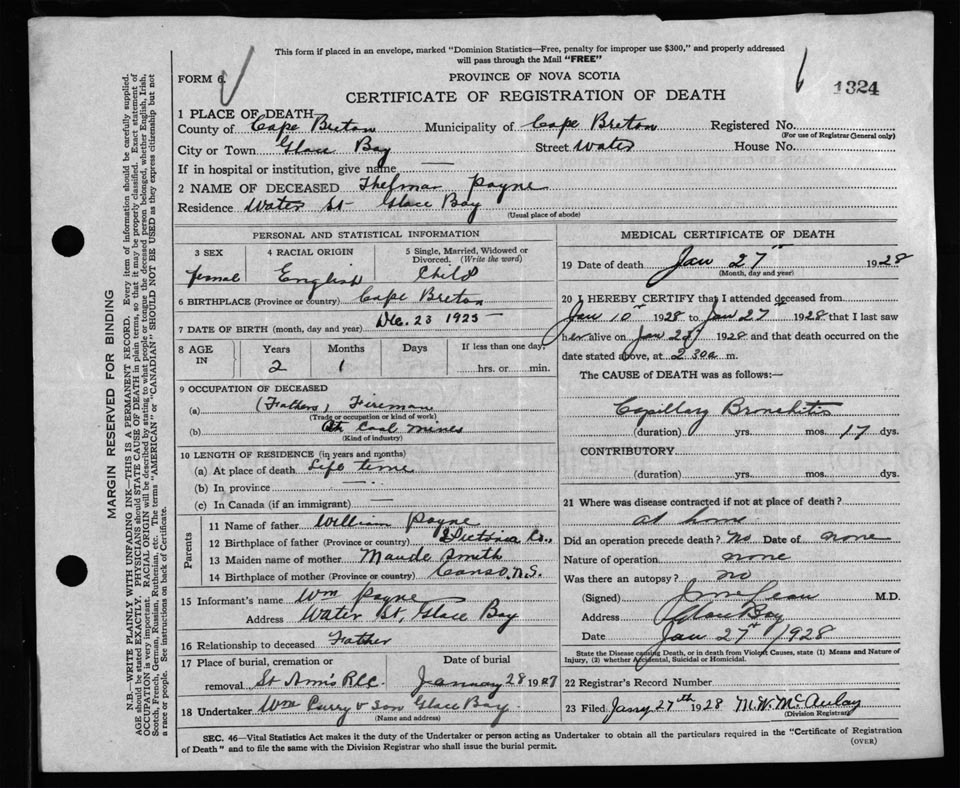 This form if placed in an envelope, marked "Dominion Statistics—Free, penalty for improper use $300," and properly addressed
will pass through the Mail "FREE"
FORM 6.
PROVINCE OF NOVA SCOTIA
1324
CERTIFICATE OF REGISTRATION OF DEATH
1 PLACE OF DEATH
County of Cape Breton Municipality of Cape Breton Registered No.
(For use of Registrar General only)
City or Town Glace Bay Street Water House No.
If in hospital or institution, give name —
2 NAME OF DECEASED Thelmar Payne
Residence Water St Glace Bay
(Usual place of abode)
PERSONAL AND STATISTICAL INFORMATION
3 SEX 4 RACIAL ORIGIN 5 Single, Married, Widowed or
Divorced. (Write the word)
femal English Child
6 BIRTHPLACE (Province or country) Cape Breton
7 DATE OF BIRTH (month, day and year) Dec. 23 1925
8 AGE IN Years Months Days If less than one day,
2 1 hrs. or min.
9 OCCUPATION OF DECEASED
(a) (Fathers) Fireman
(Trade or occupation or kind of work)
(b) At Coal mines
(Kind of industry)
10 LENGTH OF RESIDENCE (in years and months)
(a) At place of death Life time
(b) In province —
(c) In Canada (if an immigrant) —
Parents
11 Name of father William Payne
12 Birthplace of father (Province or country) Victoria Co.,
13 Maiden name of mother Maude Smith
14 Birthplace of mother (Province or country) Canso, N.S.
15 Informant's name Wm Payne
Address Water St, Glace Bay
16 Relationship to deceased Father
17 Place of burial, cremation or Date of burial
removal St Ann's R.C.C. January 28 1927
18 Undertaker Wm Curry & Son Glace Bay
(Name and address)
MEDICAL CERTIFICATE OF DEATH
19 Date of death Jan 27th 1928
(Month, day and year)
20 I HEREBY CERTIFY that I attended deceased from
Jan 10th 1928 to Jan 27th 1928 that I last saw
her alive on Jan 1928 and that death occurred on the
date stated above, at 2.30a m.
The CAUSE of DEATH was as follows:—
Capillary Bronchitis
(duration) yrs. mos. 17 dys.
CONTRIBUTORY
(duration) yrs. mos. dys.
21 Where was disease contracted if not at place of death?
at home
Did an operation precede death? No Date of none
Nature of operation none
Was there an autopsy? no
(Signed) M.D.
Address Glace Bay
Date Jan 27th 1928
State the Disease causing Death, or in death from Violent Causes, state (1) Means and Nature of
Injury, (2) whether Accidental, Suicidal or Homicidal.
22 Registrar's Record Number
23 Filed Jany 27th 1928 M.W. McAulay
(Division Registrar)
SEC. 46—Vital Statistics Act makes it the duty of the Undertaker or person acting as Undertaker to obtain all the particulars required in the "Certificate of Registration
of Death" and to file the same with the Division Registrar who shall issue the burial permit.
(OVER)
MARGIN RESERVED FOR BINDING
N.B.—WRITE PLAINLY WITH UNFADING INK—THIS IS A PERMANENT RECORD. Every item of information should be carefully supplied.
AGE should be stated EXACTLY. PHYSICIANS should STATE CAUSE OF DEATH in plain terms, so that it may be properly classified. Exact statement of
OCCUPATION is very important. RACIAL ORIGIN will be described by stating to what people or tongue the deceased person belonged, whether English, Irish,
Scotch, French, German, Russian, Ruthenian, etc. The terms "AMERICAN" or "CANADIAN" SHOULD NOT BE USED as they express citizenship but not
a race or people. See instructions on back of Certificate.